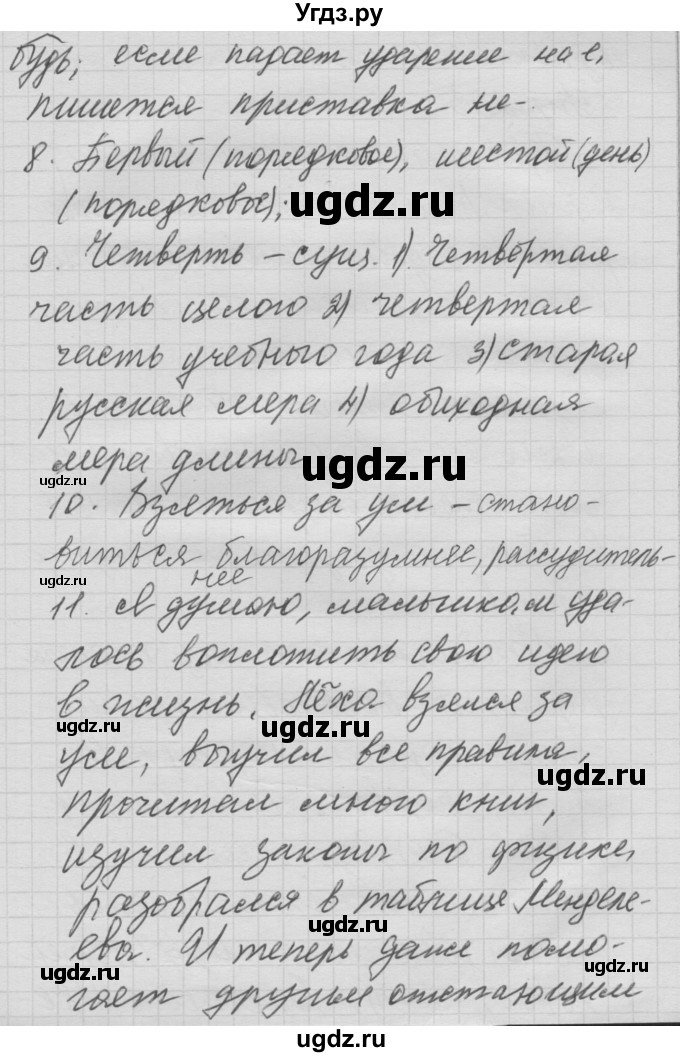 Угдз.ру
будь; если падает ударение на е,
пишется приставка не-.
8. Первый (порядковое), шестой (день)
ugdz.ru
(порядковое);
9. Четверть – сущ. 1) Четвёртая
часть целого 2) четвертая
часть учебного года 3) старая
русская мера 4) обиходная
мера длины
ugdz.ru
ugdz.ru
10. Взяться за ум – стано-
виться благоразумнее, рассудитель-
нее
ugdz.ru
11. Я думаю, мальчикам уда-
лось воплотить свою идею
в жизнь. Лёха взялся за
ugdz.ru
ugdz.ru
ум, выучил все правила,
ugdz.ru
прочитал много книг,
изучил законы по физике,
разобрался в таблице Менделе-
ева. И теперь даже помо-
ugdz.ru
ugdz.ru
гает друзьям отстающим
ugdz.ru